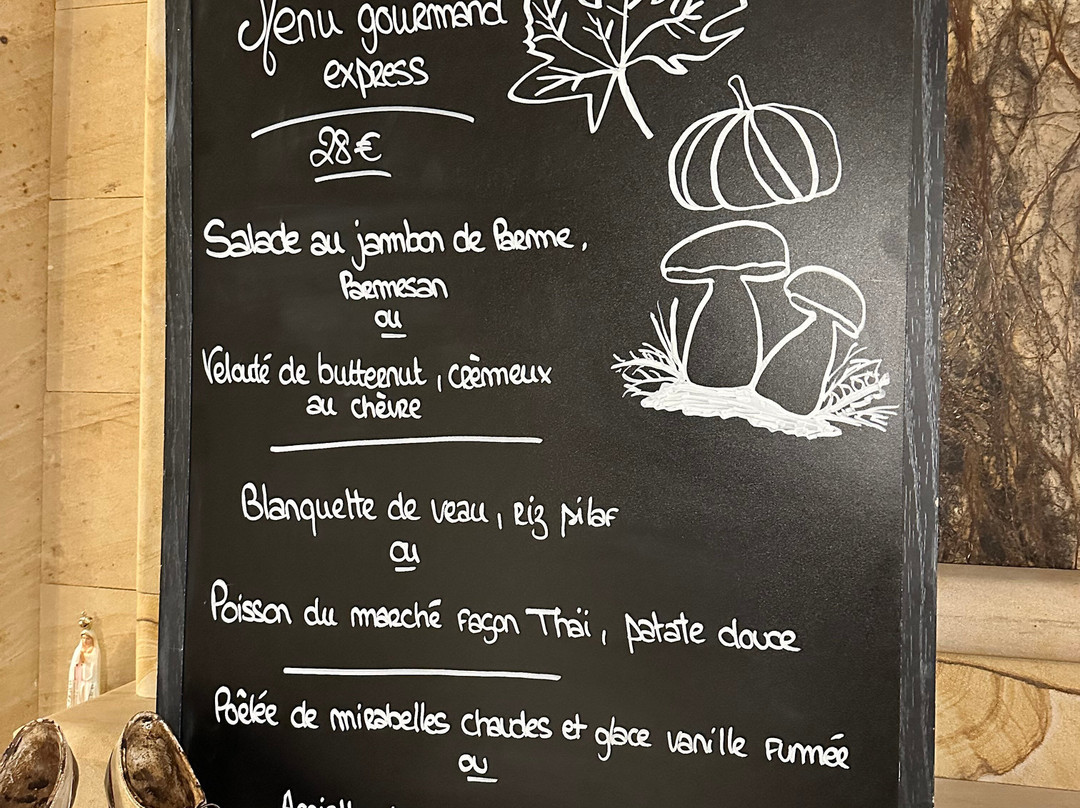 Menu gourmand
express
28€
Salade au jambon de Parme,
Parmesan
ou
Velouté de butternut, crèmeux
au chèvre
Blanquette de veau, riz pilaf
ou
Poisson du marché façon Thaï, patate douce
Poêlée de mirabelles chaudes et glace vanille fumée
ou